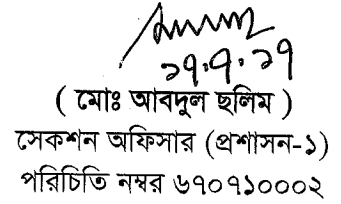 ২৭.৭.২৭
( মোঃ আবদুল ছলিম )
সেকশন অফিসার (প্রশাসন-১)
পরিচিতি নম্বর ৬৭০৭১০০০২